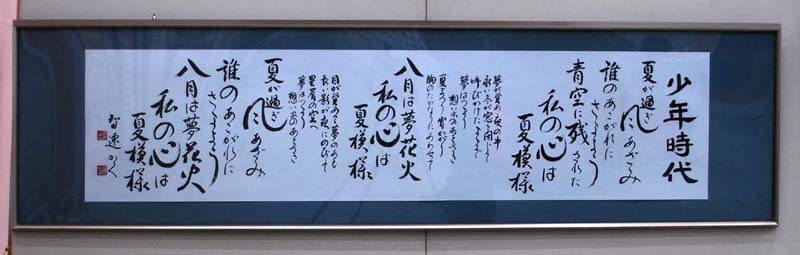 少年時代
夏が過ぎ
風あざみ
誰のあこがれに
さまよう
青空に残された
私の心は
夏模様
夢が覚め夜の中
永い冬が窓を閉じて
呼びかけたままで
夢はつまり
想い出のあとさき
夏まつり宵かがり
胸のたかなりにあわせて
八月は夢花火
私の心は
夏模様
目が覚めて夢のあと
長い影が夜にのびて
星屑の空へ
夢はつまり
想い出のあとさき
夏が過ぎ
風あざみ
誰のあこがれに
さまよう
八月は夢花火
私の心は
夏模様
かく